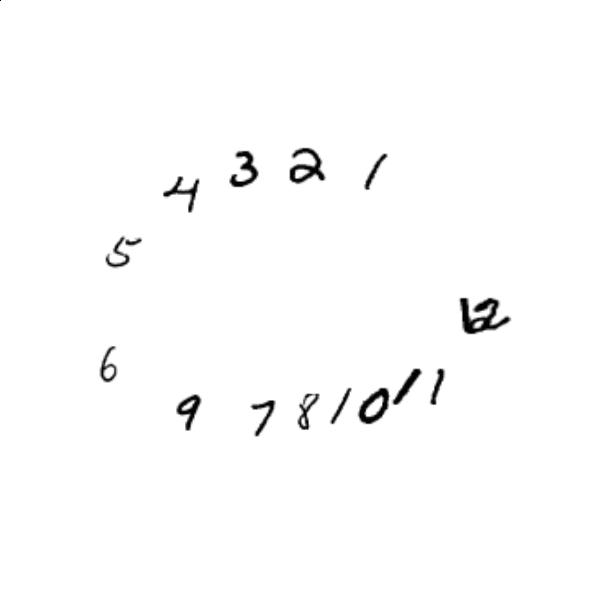 4 3 2 1
5
12
6
9 7 8 10 11